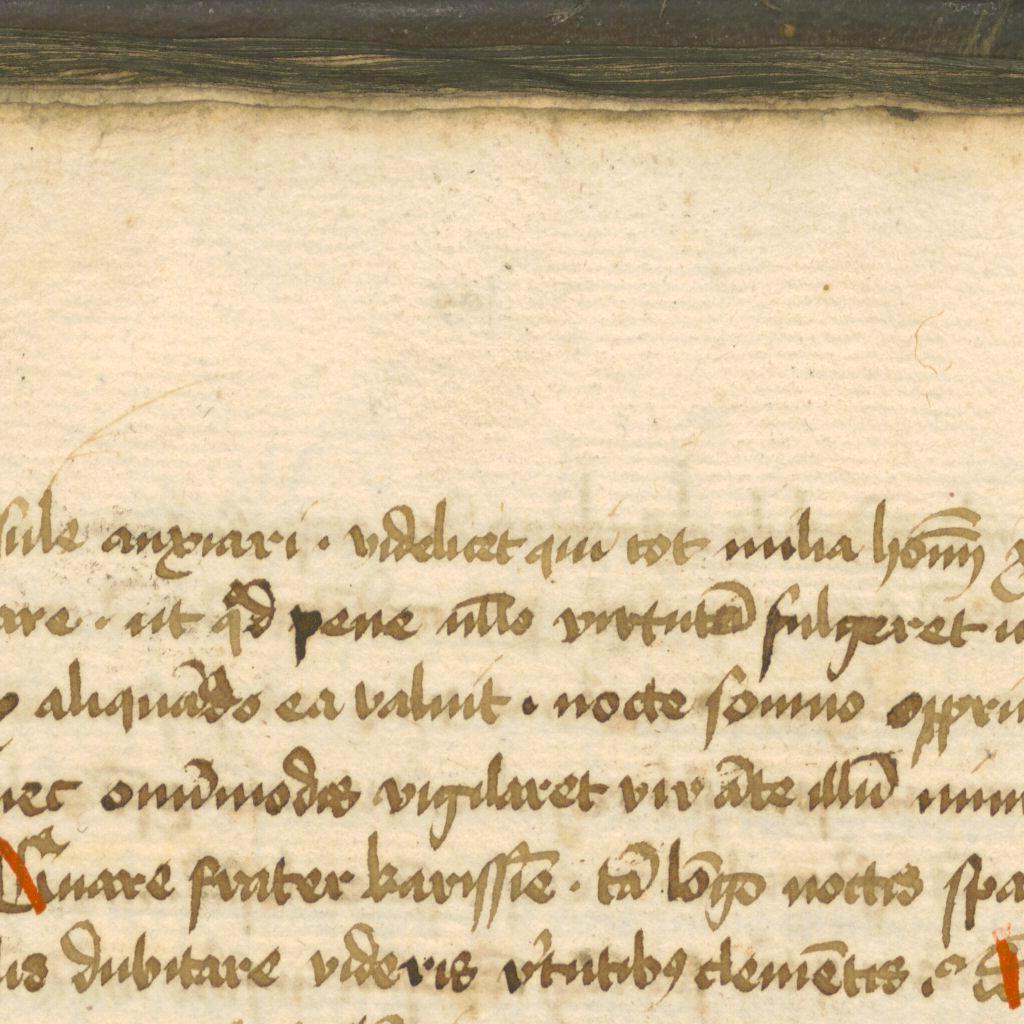 sule anxiari · videlicet qui tot milia hōīm
are · ut qd pene ullo virtutē fulgeret
aliquādo ea valuit · nocte somno oppri
nec omīmodis vigilaret vir āte illū
Quare frater karissīe · tā lōgo noctis spa
lis dubitare videris v'tutibꝫ clemētis ·